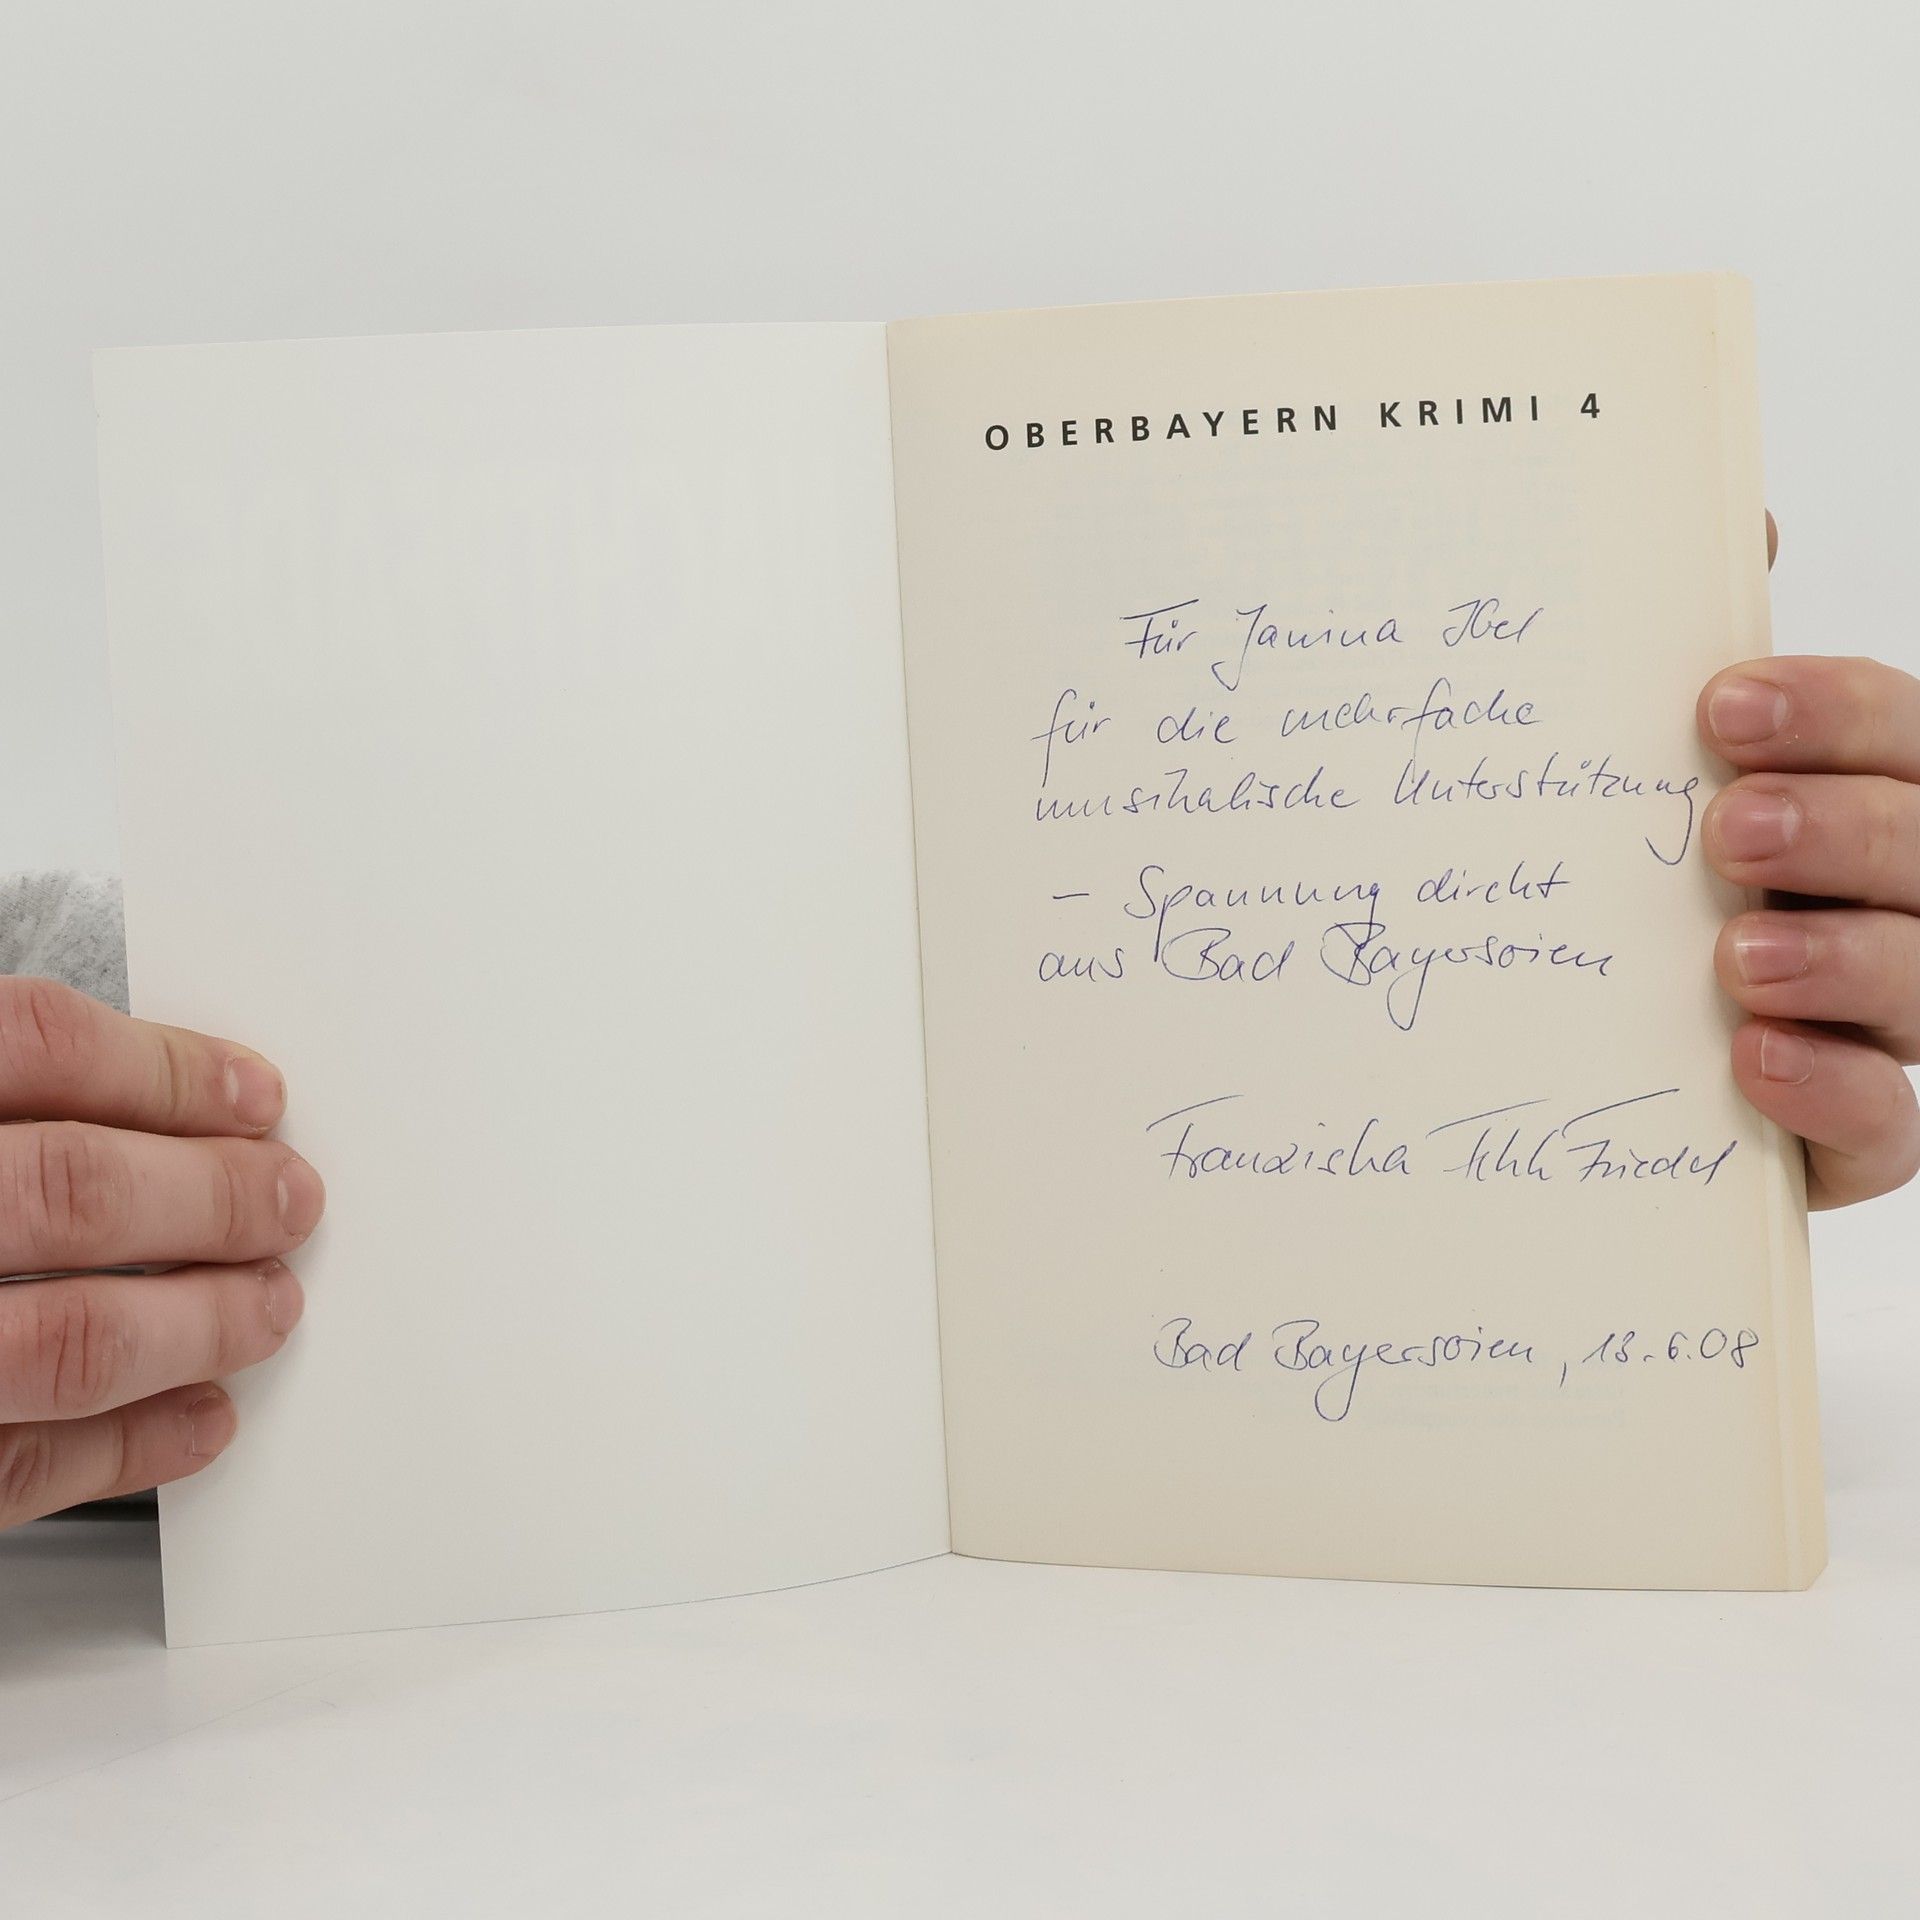 OBERBAYERN KRIMI 4
Für Janina
für die mehrfache
musikalische Unterstützung
– Spannung direkt
aus Bad Bayersoien
Franziska Friedel
Bad Bayersoien, 13.6.08